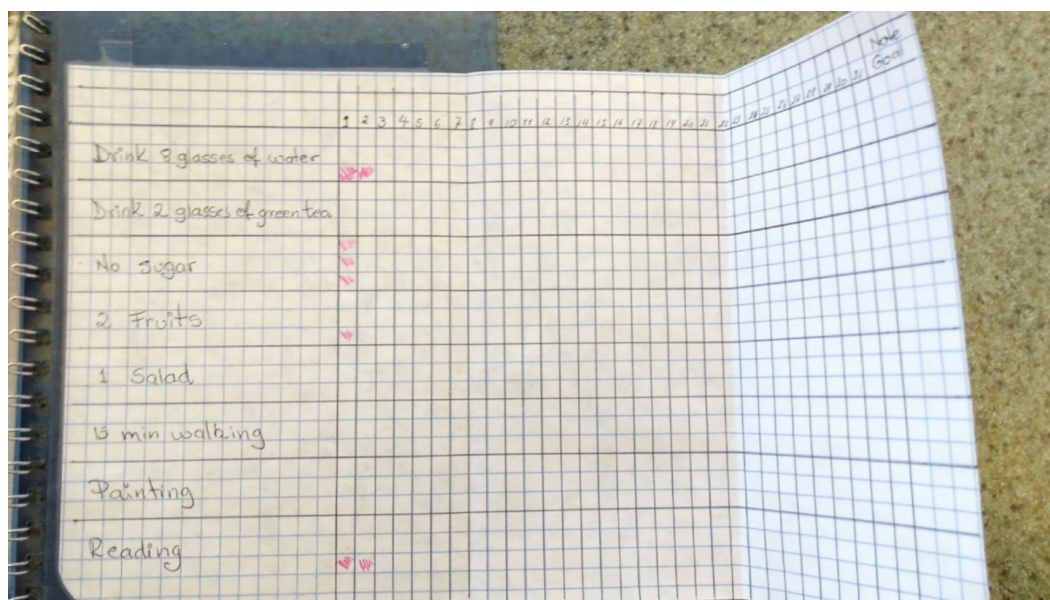 Note
Goal
1 2 3 4 5 6 7 8 9 10 11 12 13 14 15 16 17 18 19 20 21 22 23 24 25 26 27 28 29 30 31
Drink 8 glasses of water
Drink 2 glasses of green tea
No sugar
2 Fruits
1 Salad
15 min walking
Painting
Reading